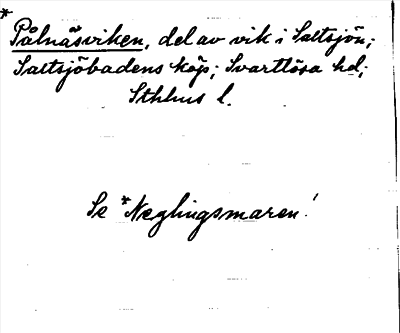 *
Pålnäsviken, del av vik i Saltsjön;
Saltsjöbadens köp; Svartlösa hd;
Sthlms l.
Se *Neglingsmaren!